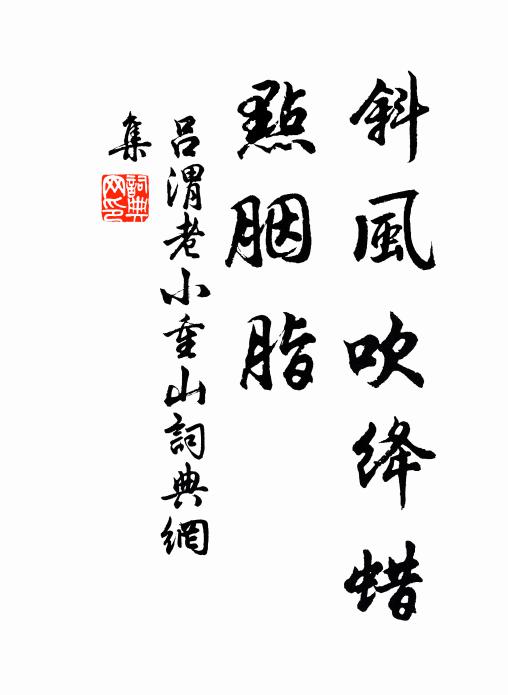 斜風吹絳蜡
點胭脂
呂渭老小重山詞典網
集
詞典網印